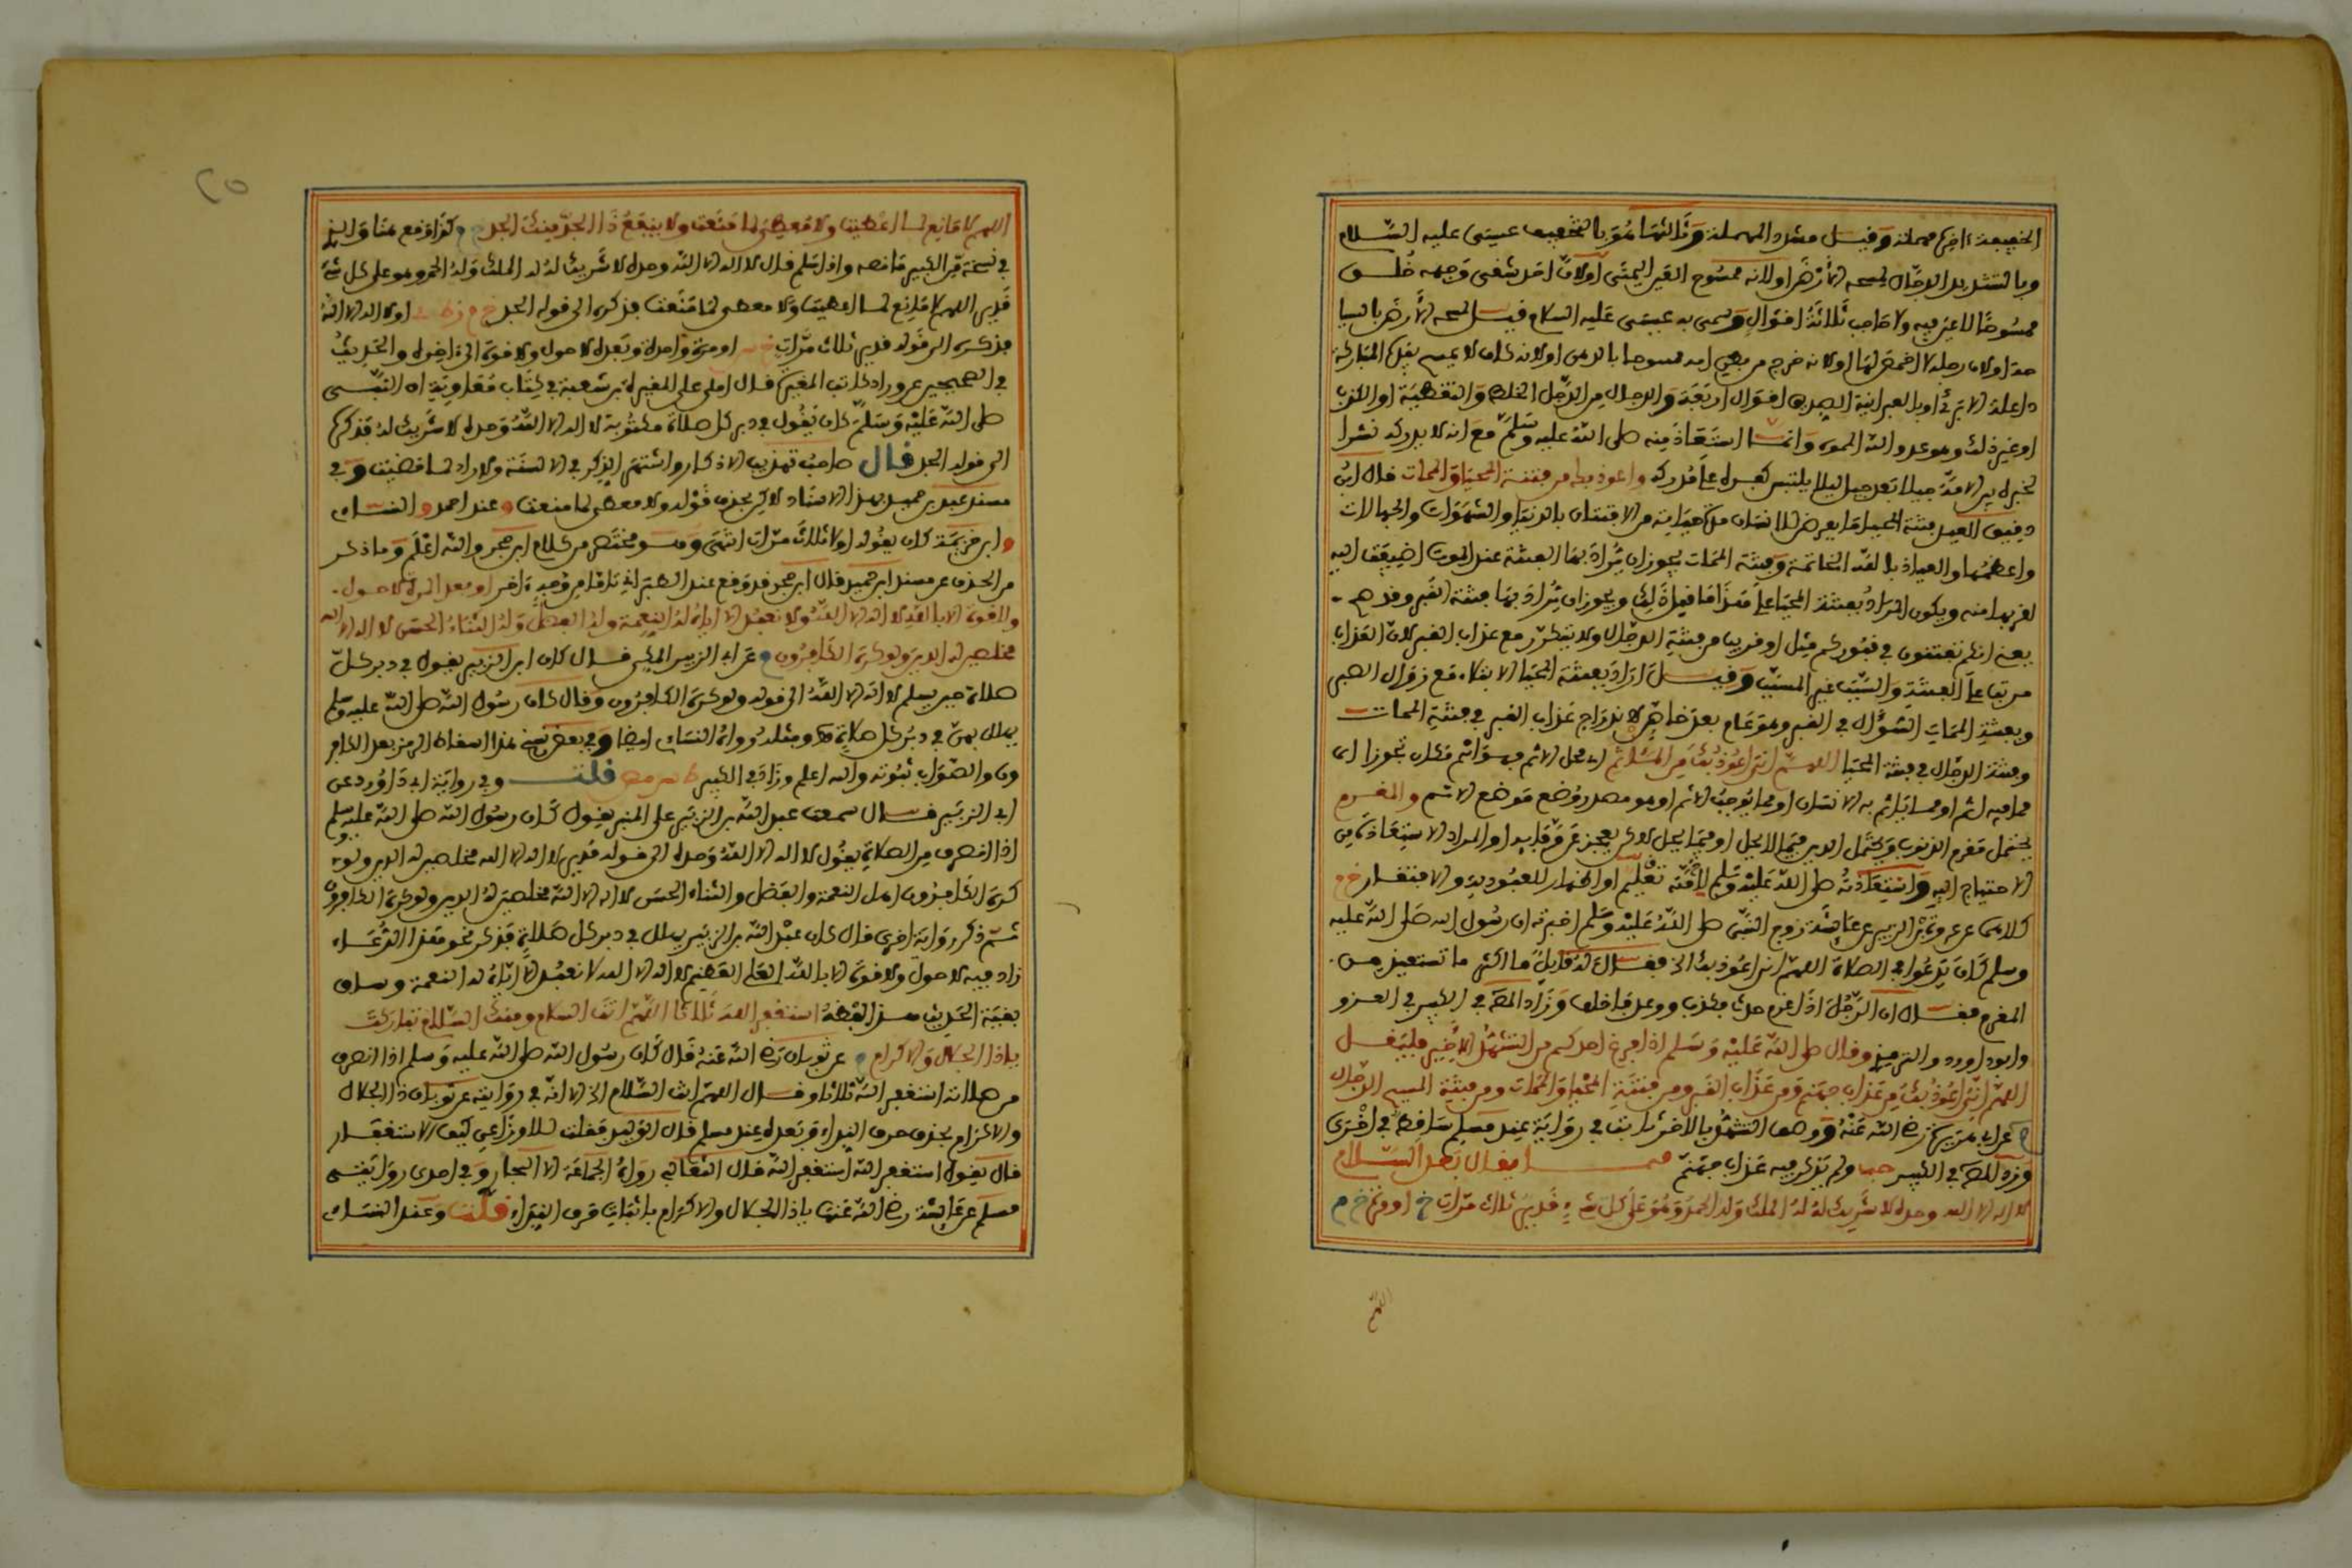 الخفيفة ءاخره مهملة وقيل مشدد المهملة وثالثها هو بالتخفيف عيسى عليه السلام
وبالتشديد الدجال لمسحه الأرض أو لأنه ممسوح العين اليمنى أو لأن أحد شقي وجهه خلق
ممسوحا لا عين فيه ولا حاجب ثلاثة أقوال وسمي به عيسى عليه السلام قيل لمسحه الأرض بالسيا
حة أو لأن رجله لا أخمص لها أو لأنه خرج من بطن أمه ممسوحا بالدهن أو لأنه كان لا يمسح
ذا علة إلا برئ أو بالعبرانية الصديق أقوال أربعة والدجال من الدجل الخلط والتغطية أو الكذب
أو غير ذلك وهو عدو الله المموه وإنما استعاذ منه صلى الله عليه وسلم مع أنه لا يدركه نشرا
لخبره بين الأمة جيلا بعد جيل ليلا يلتبس كفره على مدركه وأعوذ بك من فتنة المحيا والممات قال ابن
دقيق العيد فتنة المحيا ما يعرض للإنسان مدة حياته من الافتتان بالدنيا والشهوات والجهالات
وأعظمها والعياذ بالله الخاتمة وفتنة الممات يجوز أن يراد بها الفتنة عند الموت أضيفت إليه
لقربها منه ويكون المراد بفتنة المحيا على هذا ما قبل ذلك ويجوز أن يراد بها فتنة القبر وقد صح
يعني أنكم تفتنون في قبوركم مثل أو قريب من فتنة الدجال ولا يتكرر مع عذاب القبر لأن العذاب
مرتب على الفتنة والسبب غير المسبب وقيل أراد بفتنة المحيا الابتلاء مع زوال الصبر
وبفتنة الممات السؤال في القبر وهو عام بعد خاص لاندراج عذاب القبر في فتنة الممات
وفتنة الدجال في فتنة المحيا اللهم إني أعوذ بك من المأثم
مما فيه إثم أو مما يأثم به الإنسان أو مما يوجب الإثم أو هو مصدر وضع موضع الاسم والمغرم
يحتمل مغرم الذنوب ويحتمل الدين فيما لا يحل أو فيما يحل لكن يعجز عن وفائه أو المراد الاستعاذة من
الاحتياج إليه واستعاذته صلى الله عليه وسلم لأمته تعليم أو إظهار للعبودية والافتقار خ م
كلاهما عن عروة بن الزبير عن عائشة زوج النبي صلى الله عليه وسلم أخبرته أن رسول الله صلى الله عليه
وسلم كان يدعو في الصلاة اللهم إني أعوذ بك الخ فقال له قائل ما أكثر ما تستعيذ من
المغرم فقال إن الرجل إذا غرم حدث فكذب ووعد فأخلف وزاد المص في الكبير في العزو
وأبو داوود والترمذي وقال صلى الله عليه وسلم إذا فرغ أحدكم من التشهد الأخير فليقل
اللهم إني أعوذ بك من عذاب جهنم ومن عذاب القبر ومن فتنة المحيا والممات ومن فتنة المسيح الدجال
م عن أبي هريرة رضي الله عنه ووصف التشهد بالأخير ثابت في رواية عند مسلم ساقط في أخرى
وزاد المص في الكبير ولم يذكر فيه عذاب جهنم ما يقال بعد السلام
لا إله إلا الله وحده لا شريك له له الملك وله الحمد وهو على كل شيء قدير ثلاث مرات خ أو مرة خ م
اللهم
٢٥
اللهم لا مانع لما أعطيت ولا معطي لما منعت ولا ينفع ذا الجد منك الجد كذا وقع هنا والذي
في نسخة من الكبير ما نصه وإذا سلم قال لا إله إلا الله وحده لا شريك له له الملك وله الحمد وهو على كل شيء
قدير اللهم لا مانع لما أعطيت ولا معطي لما منعت فذكره إلى قوله الجد خ م أو لا إله إلا الله
فذكره إلى قوله قدير ثلاث مرات أو مرة واحدة وبعده لا حول ولا قوة إلى ءاخره والحديث
في الصحيحين عن وراد كاتب المغيرة قال أملى علي المغيرة بن شعبة في كتاب معاوية أن النبي
صلى الله عليه وسلم كان يقول في دبر كل صلاة مكتوبة لا إله إلا الله وحده لا شريك له فذكره
إلى قوله الجد قال صاحب تهذيب الأذكار واشتهر الذكر في الألسنة ولا راد لما قضيت وفي
مسند عبد بن حميد بهذا الإسناد لكن بحذف قوله ولا معطي لما منعت وعند أحمد والنساءي
وابن خزيمة كان يقوله أولا ثلاث مرات انتهى وهو مختصر من كلام ابن حجر والله أعلم وما ذكر
من الحذف عن مسند ابن حميد قال ابن حجر قد وقع عند الطبراني تاما من وجه ءاخر أو بعد المرة لا حول
ولا قوة إلا بالله لا إله إلا الله ولا نعبد إلا إياه له النعمة وله الفضل وله الثناء الحسن لا إله إلا الله
مخلصين له الدين ولو كره الكافرون م عن أبي الزبير المكي قال كان ابن الزبير يقول في دبر كل
صلاة حين يسلم لا إله إلا الله إلى قوله ولو كره الكافرون وقال كان رسول الله صلى الله عليه وسلم
يهلل بهن في دبر كل صلاة ومثله رواه النساءي أيضا وفي بعض نسخ هذا إسقاط الرمز بعد الكافر
ون والصواب ثبوته والله أعلم وزاد في الكبير قلت وفي رواية أبي داوود عن
أبي الزبير قال سمعت عبد الله بن الزبير على المنبر يقول كان رسول الله صلى الله عليه وسلم
إذا انصرف من الصلاة يقول لا إله إلا الله وحده إلى قوله قدير لا إله إلا الله مخلصين له الدين ولو
كره الكافرون أهل النعمة والفضل والثناء الحسن لا إله إلا الله مخلصين له الدين ولو كره الكافرون
ثم ذكر رواية أخرى قال كان عبد الله بن الزبير يهلل في دبر كل صلاة فذكر نحو هذا الدعاء
زاد فيه لا حول ولا قوة إلا بالله العلي العظيم لا إله إلا الله لا نعبد إلا إياه له النعمة وساق
بقية الحديث هذا لفظه أستغفر الله ثلاثا اللهم أنت السلام ومنك السلام تباركت
يا ذا الجلال والإكرام م عن ثوبان رضي الله عنه قال كان رسول الله صلى الله عليه وسلم إذا انصرف
من صلاته استغفر الله ثلاثا وقال اللهم أنت السلام الخ إلا أنه في روايته عن ثوبان ذا الجلال
والإكرام بحذف حرف النداء وبعده عند مسلم قال الوليد فقلت للأوزاعي كيف الاستغفار
قال يقول أستغفر الله أستغفر الله قال رواه الجماعة إلا البخاري وفي إحدى روايتي
مسلم عن عائشة رضي الله عنها يا ذا الجلال والإكرام بإثبات حرف النداء قلت وعند النساءي